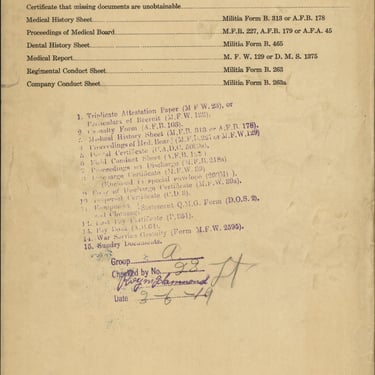 Certificate that missing documents are unobtainable
Medical History Sheet Militia Form B. 313 or A.F.B. 178
Proceedings of Medical Board M.F.B. 227, A.F.B. 179 or A.F.A. 45
Dental History Sheet Militia Form B. 465
Medical Report M. F. W. 129 or D. M. S. 1375
Regimental Conduct Sheet Militia Form B. 263
Company Conduct Sheet Militia Form B. 263a
1. Triplicate Attestation Paper (M F W. 23), or
Particulars of Recruit (M.F.W. 133).
2. Casualty Form (A.F.B. 103).
3. Medical History Sheet (M.F.B. 313 or A.F.B. 178).
4. Proceedings of Med. Board (M.F.B. 227 or M.F.W. 129)
Dental Certificate (C.A.D.C.
6. Field Conduct Sheet (A.F.B.
7. Proceedings on Discharge (M.F.B. 218a)
Discharge Certificate (M.F.W. 39)
(Enclosed in special envelope
of Discharge Certificate (M.F.W. 39a).
Certificate (C.D 3).
Equipment Statement Q.M.G. Form (D.O.S. 2).
and Clothing
Last Pay Certificate
13. Pay Book
14. War Service Gratuity (Form M.F.W. 2595).
15. Sundry Documents.
Group A
Checked by No. 22
Date 3-6-19